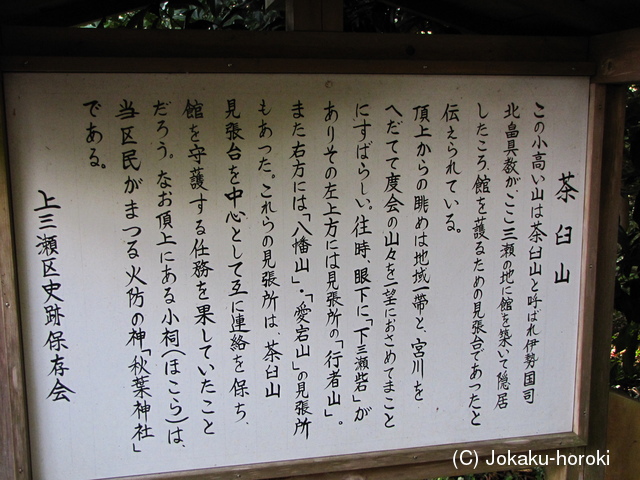 茶臼山
この小高い山は茶臼山と呼ばれ伊勢国司
北畠具教が、ここ三瀬の地に館を築いて隠居
したころ、館を護るための見張台であったと
伝えられている。
頂上からの眺めは地域一帯と、宮川を
へだてて度会の山々を一望におさめてまこと
にすばらしい。往時、眼下に「下三瀬砦」が
ありその左上方には見張所の「行者山」。
また右方には「八幡山」・「愛宕山」の見張所
もあった。これらの見張所は、茶臼山
見張台を中心として互に連絡を保ち、
館を守護する任務を果していたこと
だろう。なお頂上にある小祠(ほこら)は、
当区民がまつる火防の神「秋葉神社」
である。
上三瀬区史跡保存会
(C) Jokaku-horoki